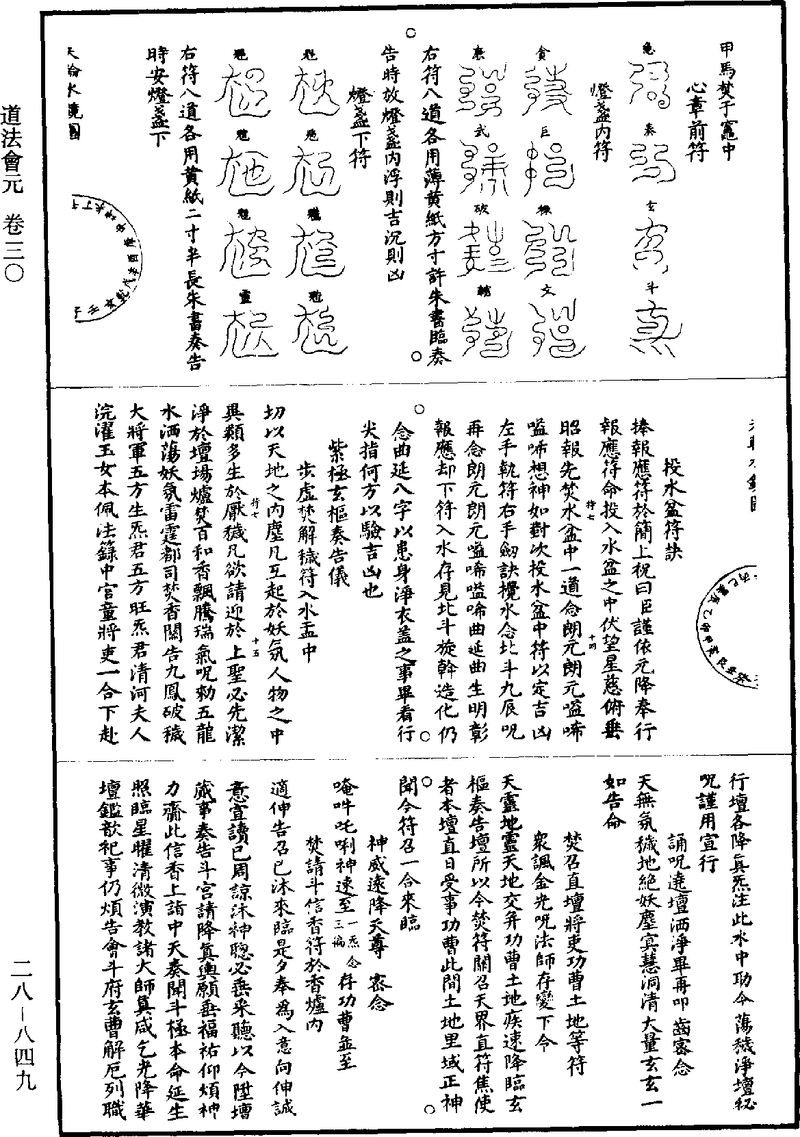 道法會元 卷三〇
甲馬焚于竈中
心章前符
急 奏 玄 斗
燈盞內符
貪 巨 祿 文
廉 武 破 輔
右符八道各用薄黃紙方寸許朱書臨奏
告時放燈盞內浮則吉沉則凶
燈盞下符
右符八道各用黃紙二寸半長朱書奏告
時安燈盞下
投水盆符訣
捧報應符於簡上祝曰臣謹依元降奉行
報應符命投入水盆之中伏望星慈俯垂
昭報先焚水盆中一道念朗元朗元嗌啼
嗌啼想神如對次投水盆中符以定吉凶
左手執符右手劒訣攪水念北斗九辰呪
再念朗元朗元嗌啼嗌啼曲延曲生明彰
報應却下符入水存見北斗旋斡造化仍
念曲延八字以患身淨衣蓋之事畢看行
尖指何方以驗吉凶也
紫極玄樞奏告儀
步虛焚解穢符入水盂中
切以天地之內塵凡互起於妖氛人物之中
異類多生於厭穢凡欲請迎於上聖必先潔
淨於壇場爐焚百和香飄騰瑞氣呪勑五龍
水洒蕩妖氛雷霆都司焚香關告九鳳破穢
大將軍五方生炁君五方旺炁君清河夫人
浣濯玉女本佩法籙中官童將吏一合下赴
行壇各降真炁注此水中助令蕩穢淨壇祕
呪謹用宣行
誦呪遶壇洒淨畢再叩齒密念
天無氛穢地絕妖塵冥慧洞清大量玄玄一
如告命
焚召直壇將吏功曹土地等符
衆諷金光呪法師存變下令
天靈地靈天地交并功曹土地疾速降臨玄
樞奏告壇所以今焚符關召天界直符焦使
者本壇直日受事功曹此間土地里域正神
聞今符召一合來臨
神威速降天尊 密念
唵吽吒唎神速至一炁念三徧存功曹並至
焚請斗信香符於香爐內
適伸告召已沐來臨是夕奉為入意向伸誠
意宣讀已周諒沐神聰必垂采聽以今陞壇
蕆事奏告斗宮請降真輿願垂福祐仰煩神
力齎此信香上詣中天奏聞斗極本命延生
照臨星曜清微演教諸大師真咸乞光降華
壇鑑歆祀事仍煩告會斗府玄曹解厄列職
二八—八四九